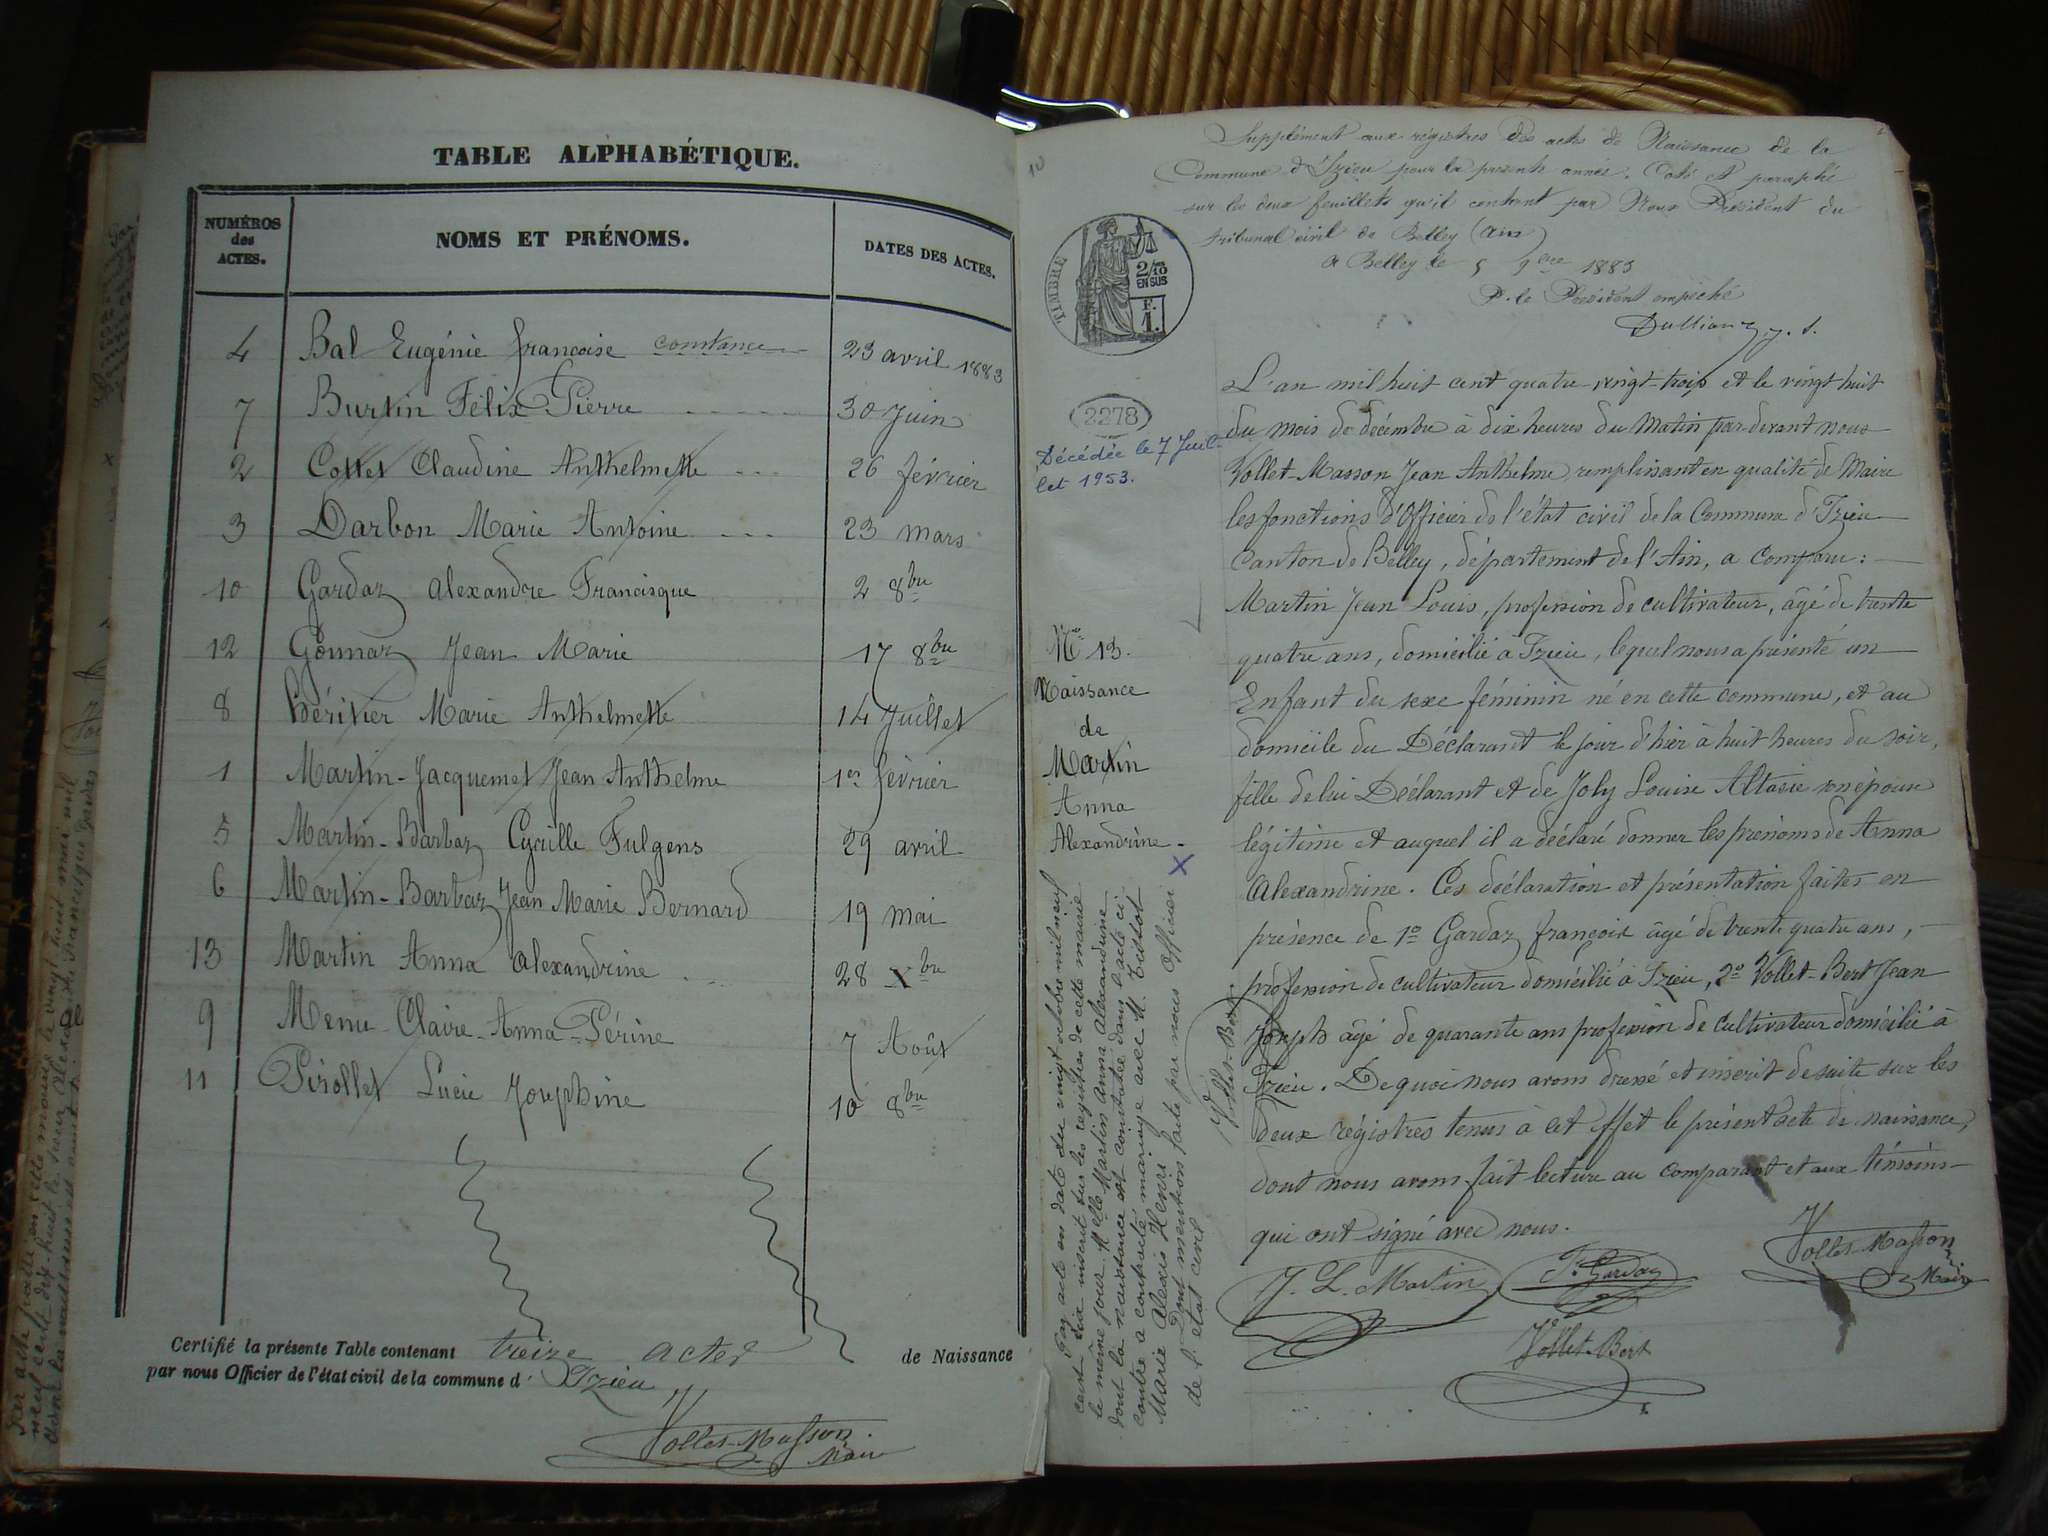 TABLE ALPHABÉTIQUE.
NUMÉROS des ACTES.
NOMS ET PRÉNOMS.
DATES DES ACTES.
4 Bal Eugénie françoise constance 23 avril 1883
7 Burtin Félix Pierre 30 Juin
2 Cottet Claudine Anthelmette 26 février
3 Darbon Marie Antoine 23 mars
10 Gardaz alexandre Francisque 2 8bre
12 Gonnaz Jean Marie 17 8bre
8 héritier Marie Anthelmette 14 Juillet
1 Martin-Jacquemet Jean Anthelme 1er février
5 Martin-Barbaz Cyrille Fulgens 29 avril
6 Martin-Barbaz Jean Marie Bernard 19 mai
13 Martin Anna alexandrine 28 Xbre
9 Menu Claire-Anna-Périne 7 Août
11 Pirollet Lucie Josephine 10 8bre
Certifié la présente Table contenant treize actes de Naissance
par nous Officier de l'état civil de la commune d' Izieu
Vollet-Masson
Maire
10
Supplément aux régistres des actes de Naissance de la
Commune d'Izieu pour la présente année. Coté et paraphé
sur les deux feuillets qu'il contient par Nous Président du
tribunal civil de Belley (ain)
a Belley le 5 9bre 1883
P. le Président empêché
TIMBRE
2/10
EN SUS
F.
1.
2278
Décédée le 7 Juil-
let 1953.
No 13.
Naissance
de
Martin
Anna
Alexandrine
L'an mil huit cent quatre vingt-trois et le vingt huit
du mois de décembre à dix heures du Matin par devant nous
Vollet-Masson Jean Anthelme remplissant en qualité de Maire
les fonctions d'Officier de l'état civil de la Commune d'Izieu
Canton de Belley, département de l'Ain, a comparu :
Martin Jean Louis, profession de cultivateur, âgé de trente
quatre ans, domicilié à Izieu, lequel nous a présenté un
Enfant du sexe féminin né en cette commune, et au
domicile du Déclarant le jour d'hier à huit heures du soir,
fille de lui Déclarant et de Joly Louise Altasie son épouse
légitime et auquel il a déclaré donner les prénoms de Anna
Alexandrine. Ces déclaration et présentation faites en
présence de 1o Gardaz françois âgé de trente quatre ans,
profession de cultivateur domicilié à Izieu, 2o Vollet-Bert Jean
Joseph âgé de quarante ans profession de cultivateur domicilié à
Izieu. De quoi nous avons dressé et inscrit de suite sur les
deux régistres tenus à cet effet le présent acte de naissance,
dont nous avons fait lecture au comparant et aux témoins
qui ont signé avec nous.
J. L. Martin
F. Gardaz
Vollet-Masson
Maire
Vollet-Bert
Par acte en date du vingt octobre mil neuf
cent dix inscrit sur les registres de cette mairie
le même jour, Melle Martin Anna Alexandrine
dont la naissance est constatée dans l'acte ci
contre a contracté mariage avec M. Tissot
Marie Alexis Henri
Dont mention faite par nous Officier
de l'état civil
Vollet-Bert